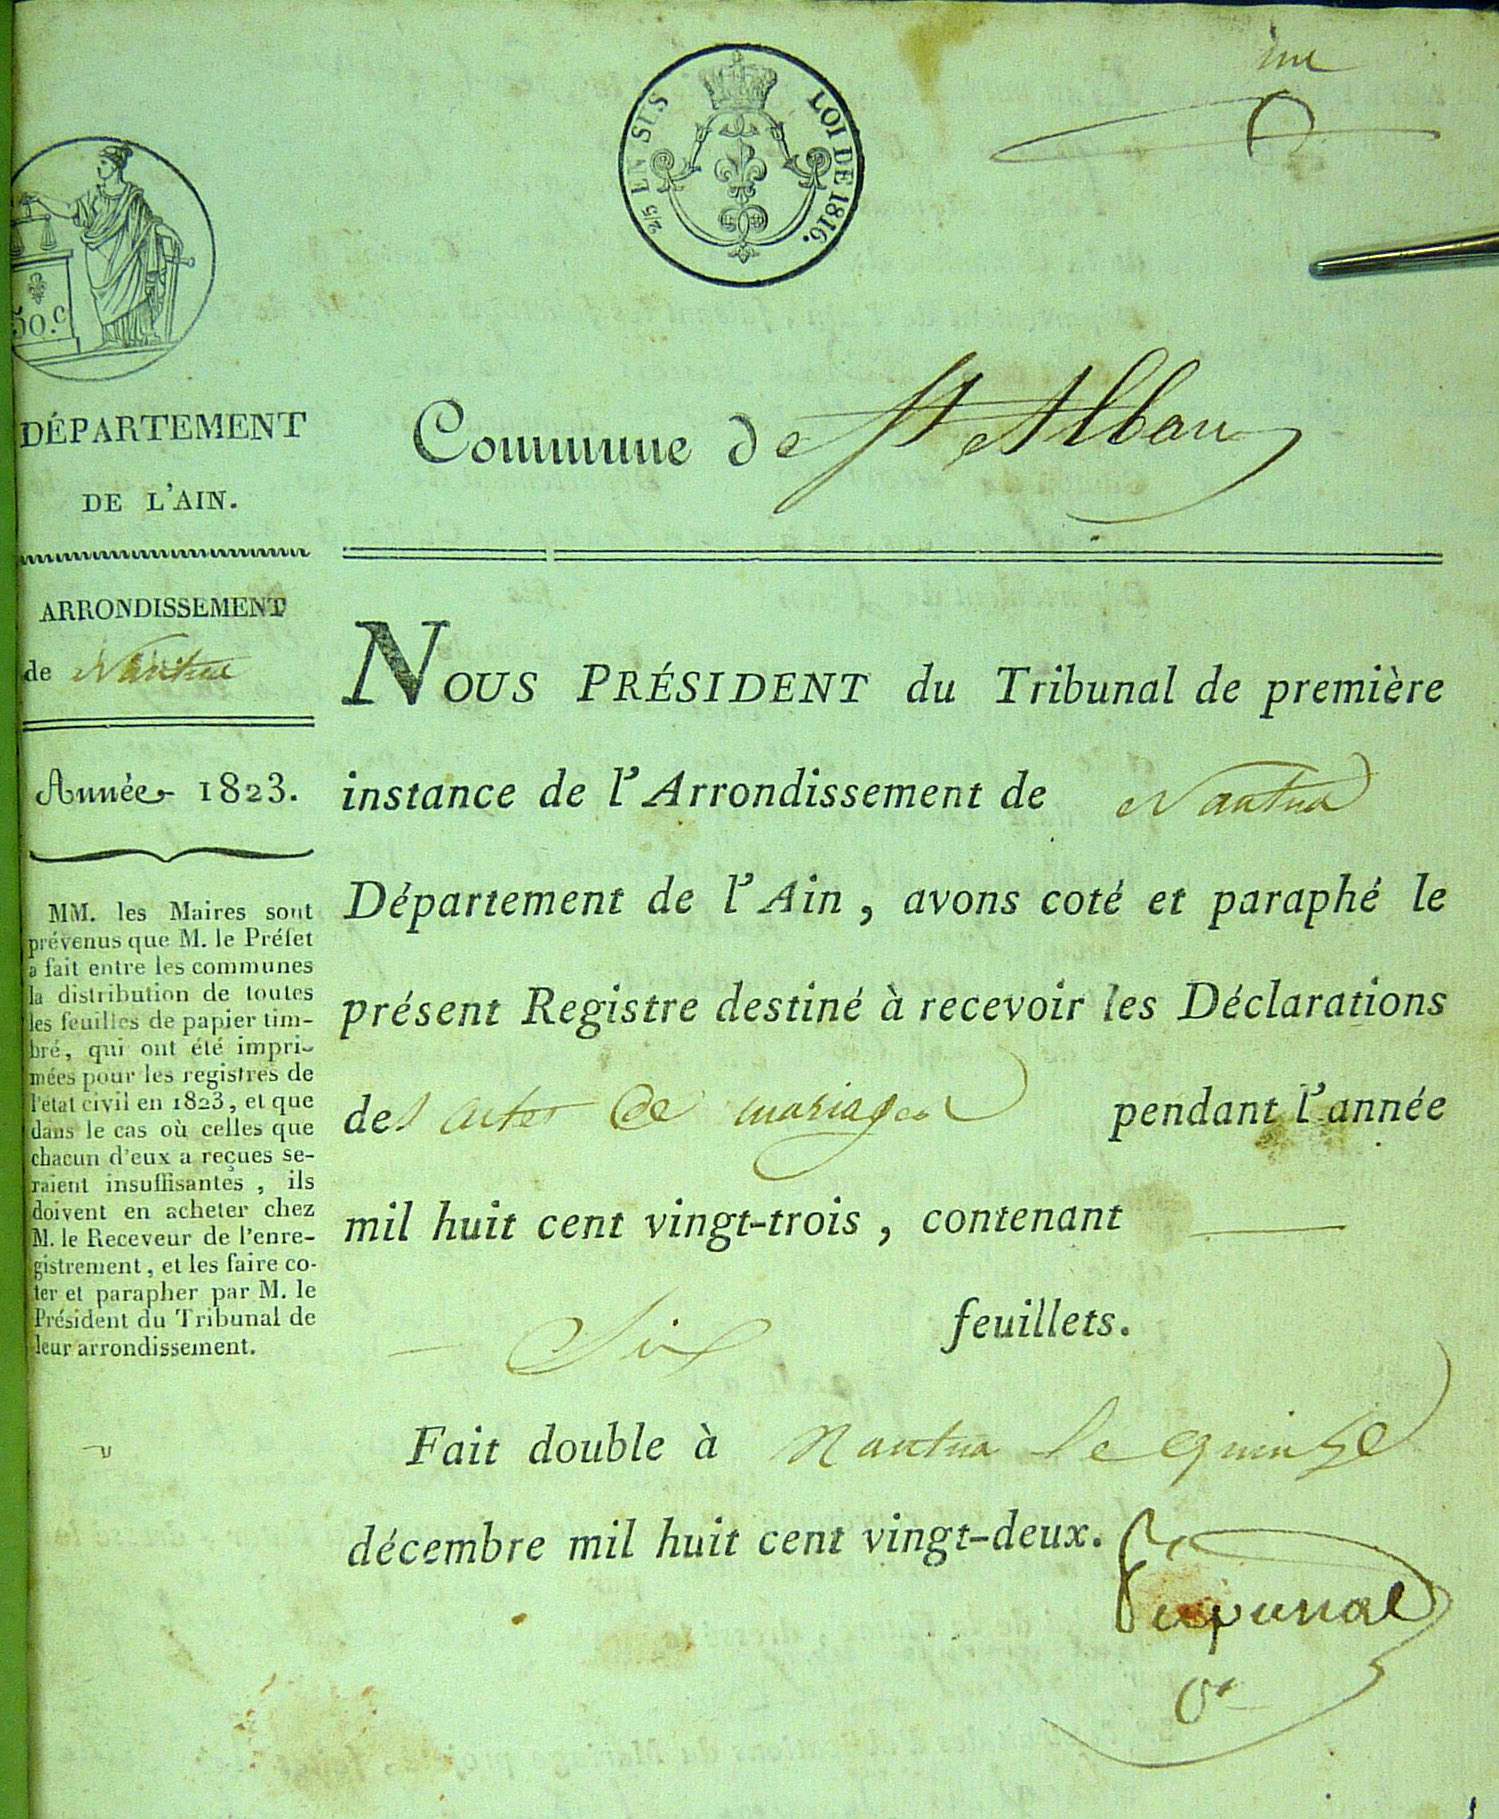 2/5 EN SUS
LOI DE 1816.
50.C
DÉPARTEMENT
DE L'AIN.
ARRONDISSEMENT
de Nantua
Année 1823.
MM. les Maires sont
prévenus que M. le Préfet
a fait entre les communes
la distribution de toutes
les feuilles de papier tim-
bré, qui ont été impri-
mées pour les registres de
l'état civil en 1823, et que
dans le cas où celles que
chacun d'eux a reçues se-
raient insuffisantes, ils
doivent en acheter chez
M. le Receveur de l'enre-
gistrement, et les faire co-
ter et parapher par M. le
Président du Tribunal de
leur arrondissement.
Commune de St Alban
NOUS PRÉSIDENT du Tribunal de première
instance de l'Arrondissement de Nantua
Département de l'Ain, avons coté et paraphé le
présent Registre destiné à recevoir les Déclarations
des actes de mariages pendant l'année
mil huit cent vingt-trois, contenant
six feuillets.
Fait double à Nantua le quinze
décembre mil huit cent vingt-deux.